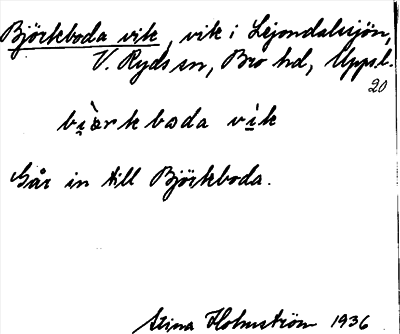 Björkeboda vik, vik i Lejondalssjön,
V. Ryds sn, Bro hd, Uppsl.
20
bi̯ὰrkboda vi̇k
Går in till Björkeboda.
Stina Holmström 1936